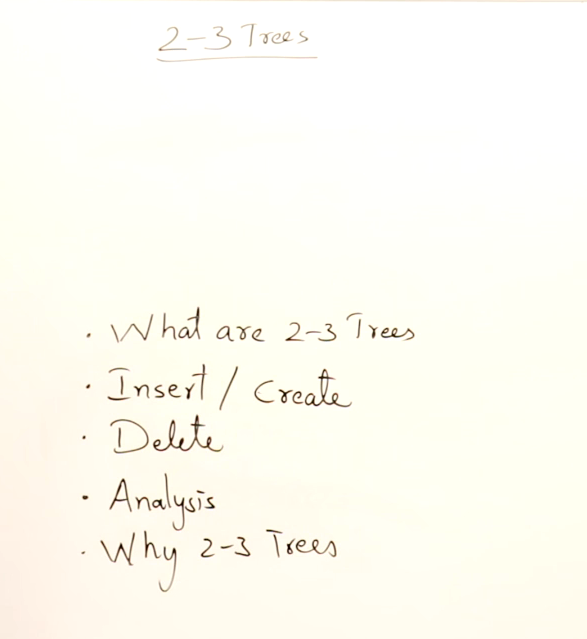 2-3 Trees
• What are 2-3 Trees
• Insert / Create
• Delete
• Analysis
• Why 2-3 Trees